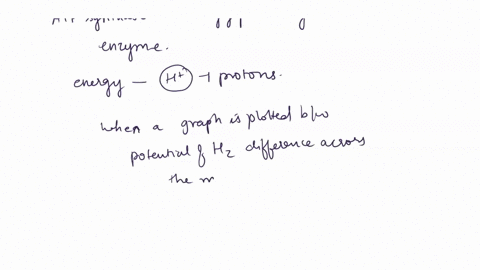 enzyme.
energy — H+ → protons.
when a graph is plotted b/w
potential of H2 difference across
the m